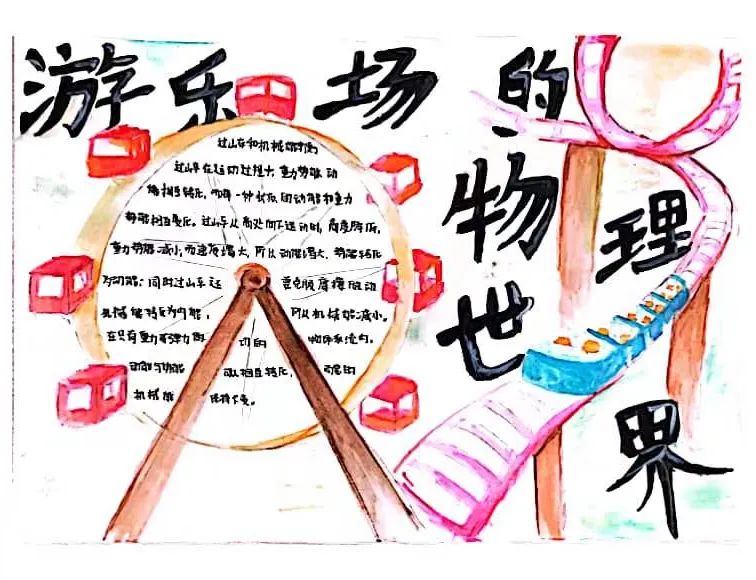 游乐场的
物理
世
界
过山车和机械能守恒
过山车在运动过程中,重力势能、动
能相互转化,而每一种状态因动能和重力
势能相互变化。过山车从高处向下运动时,高度降低,
重力势能减小,而速度增大,所以动能增大,势能转化
为动能;同时过山车还 要克服摩擦阻力
机械能转变为内能, 所以机械能减小。
在只有重力或弹力做 功的 物体系统内,
动能与势能 可以相互转化, 而总的
机械能 保持不变。